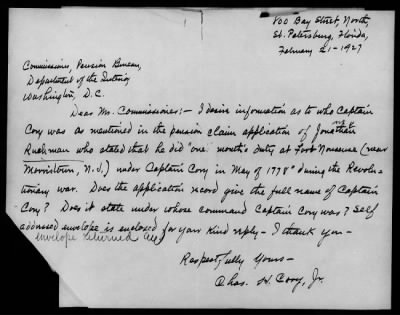 800 Bay Street, North,
St. Petersburg, Florida,
February 21 - 1927
Commissioner, Pension Bureau,
Department of the Interior
Washington, D.C.
Dear Mr. Commissioner: - I desire information as to who Captain
Cory was as mentioned in the pension claim application of Jonathan
who stated he did "one month's duty at Fort Nonsense (near
Morristown, N.J.) under Captain Cory in May of 1778" during the Revolu-
tionary war. Does the application record give the full name of Captain
Cory? Does it state under whose command Captain Cory was? Self
addressed envelope is enclosed for your kind reply - I thank you -
envelope returned
Respectfully Yours -
Chas. H. Cory, Jr.